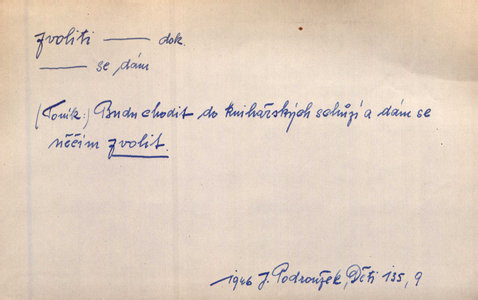 zvoliti —— dok.
—— se dám
(Toník:) Budu chodit do knihařských schůzí a dám se
něčím zvolit.
1946 J. Podroužek, Děti 135, 9